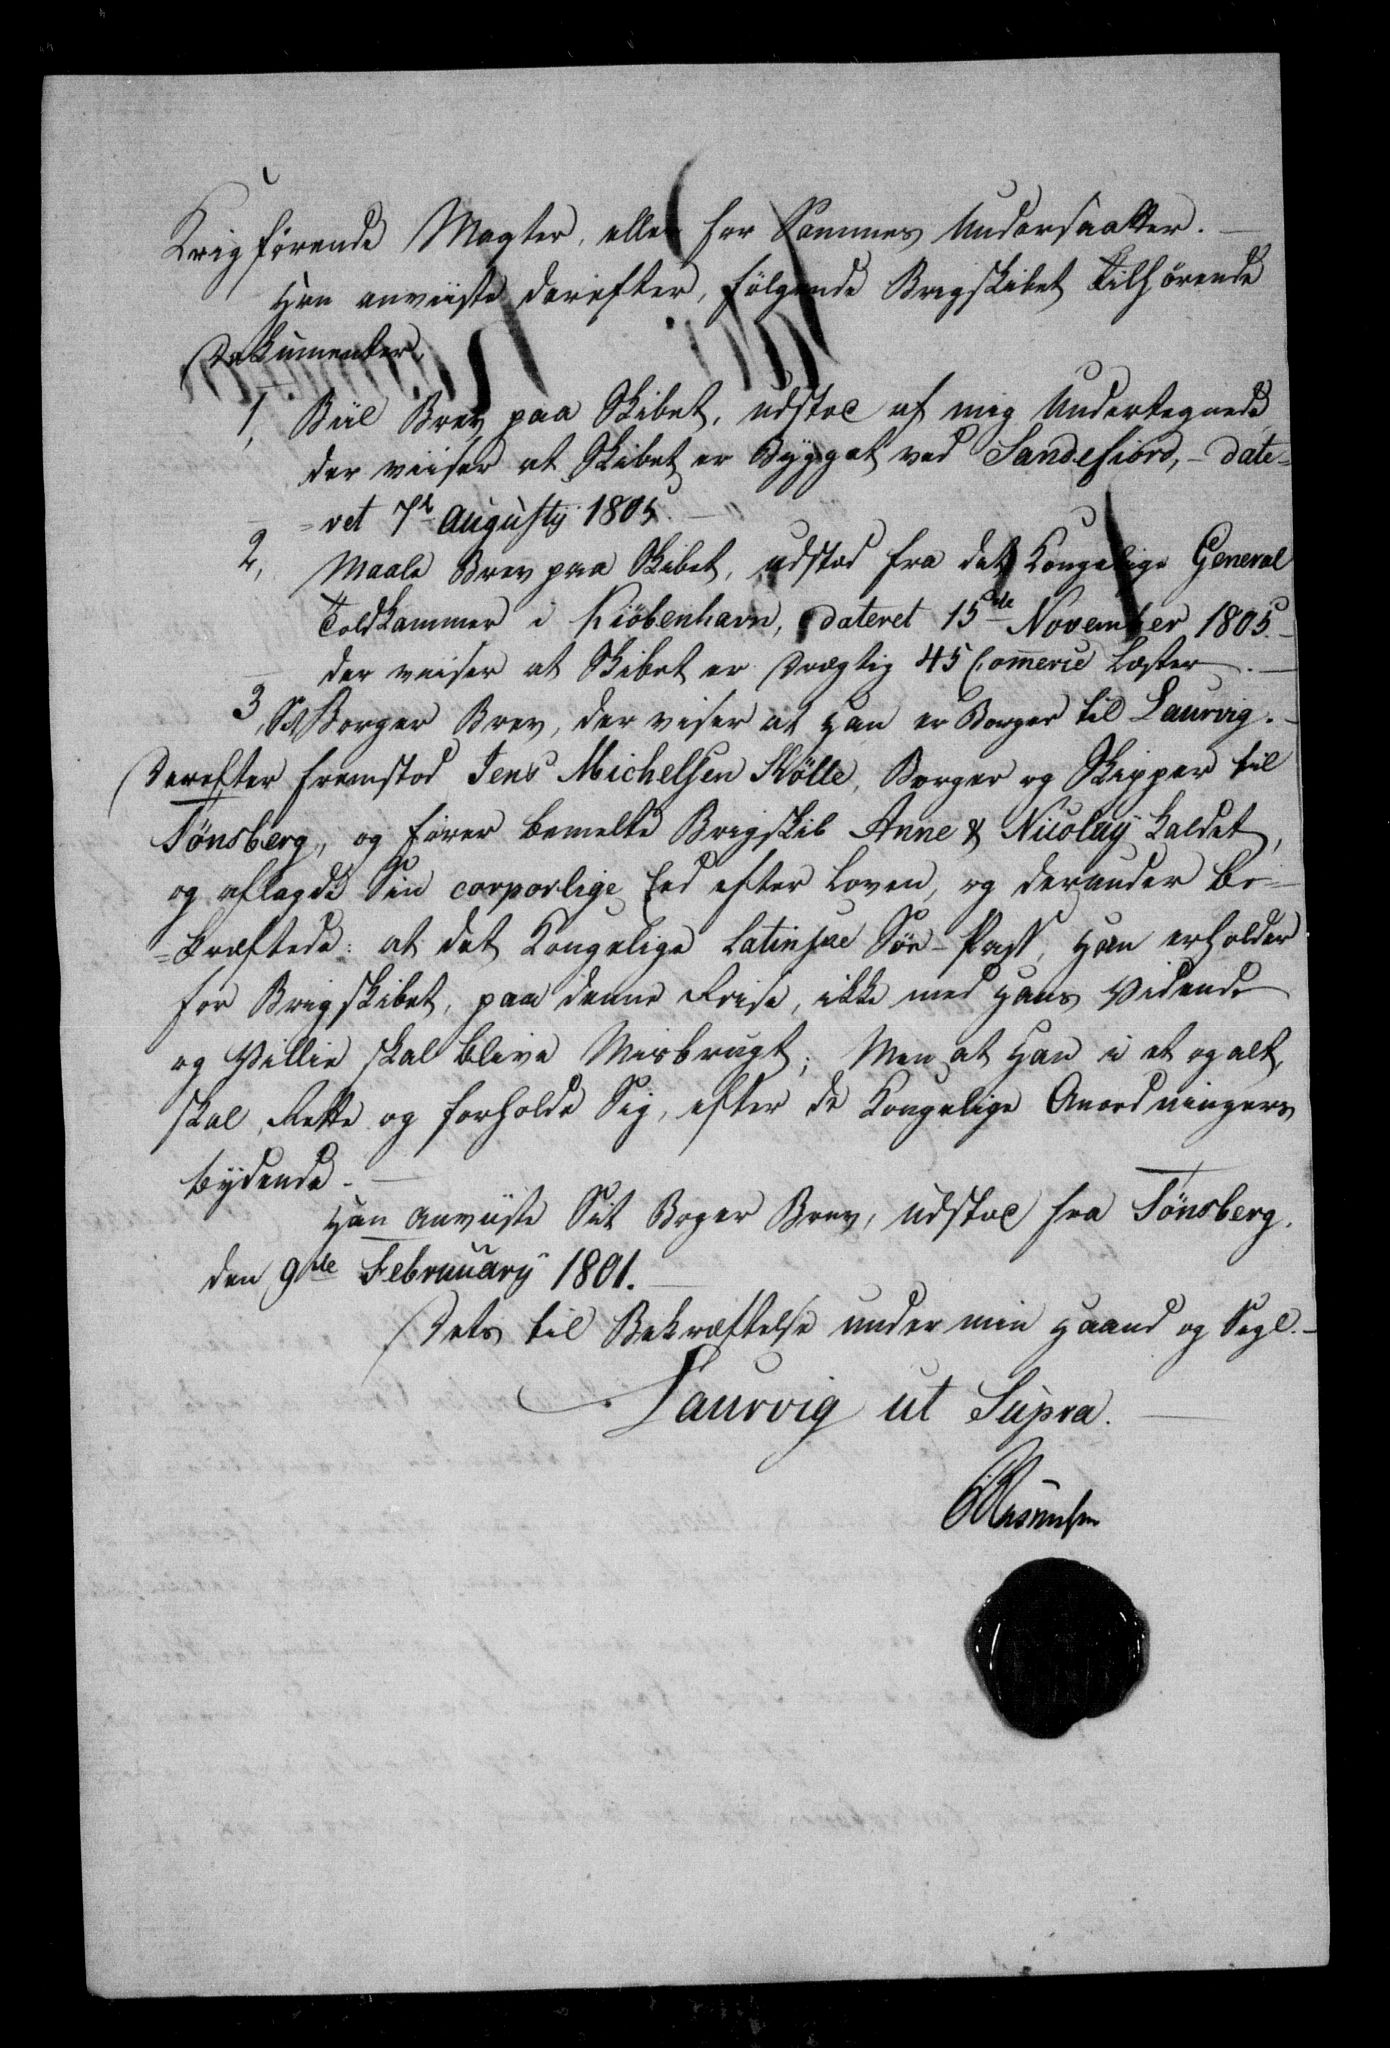 Krigförende Magter, eller for Sammes Undersaatter. —
Han anviiste derefter, fölgende Brigskibet tilhörende
Dokumenter,
1, Biil Brev paa Skibet, udstæd af mig Undertegnede
der viiser at Skibet er Bygget ved Sandefiord, - date=
=ret 7de Augusty 1805. —
2, Maale Brev paa Skibet, udstæd fra det Kongelige General
Toldkammer i Kiöbenhavn, dateret 15de November 1805. —
der viiser at Skibet er drægtig 45 Commerce Læster. —
3, Sit Borger Brev, der viser at Han er Borger til Laurvig. —
Derefter fremstod Jens Michelsen Kölle, Borger og Skipper til
Tönsberg, og förer bemelte Brigskib Anne & Nicolay kaldet,
og aflagde Sin corporlige Eed efter Loven, og derunder be=
=kræftede: at det Kongelige Latinske Söe-Pass, Han erholder
for Brigskibet, paa denne Reise, ikke med Hans Vidende
og Villie skal blive Misbrugt; Men at Han i et og alt,
skal Rette og forholde Sig, efter de Kongelige Anordningers
bydende. —
Han anviiste Sit Borger Brev, udstæd fra Tönsberg,
den 9de February 1801. —
Dets til Bekræftelse under min Haand og Segl. —
Laurvig ut Supra. —